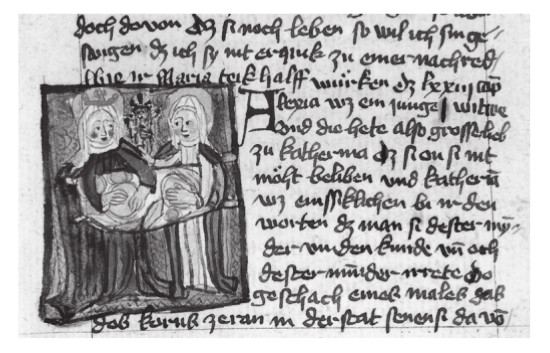 doch do von dz si noch leben so wil ich si nge-
swigen dz ich sy nit erquik zu einer nachred/
Wie ir Maria teik halff würken dz lxxiij cap
Alexia wz ein junge witwe
vnd die hete also gross lieb
zu katherina dz si on si nit
möht beliben vnd katherina
wz einssklichen bi ir den
worten dz man si dester my-
der vn den kinde vn och
dester minder irrete Do
geschach eines males das
das kornb zeran in der stat senens da vo